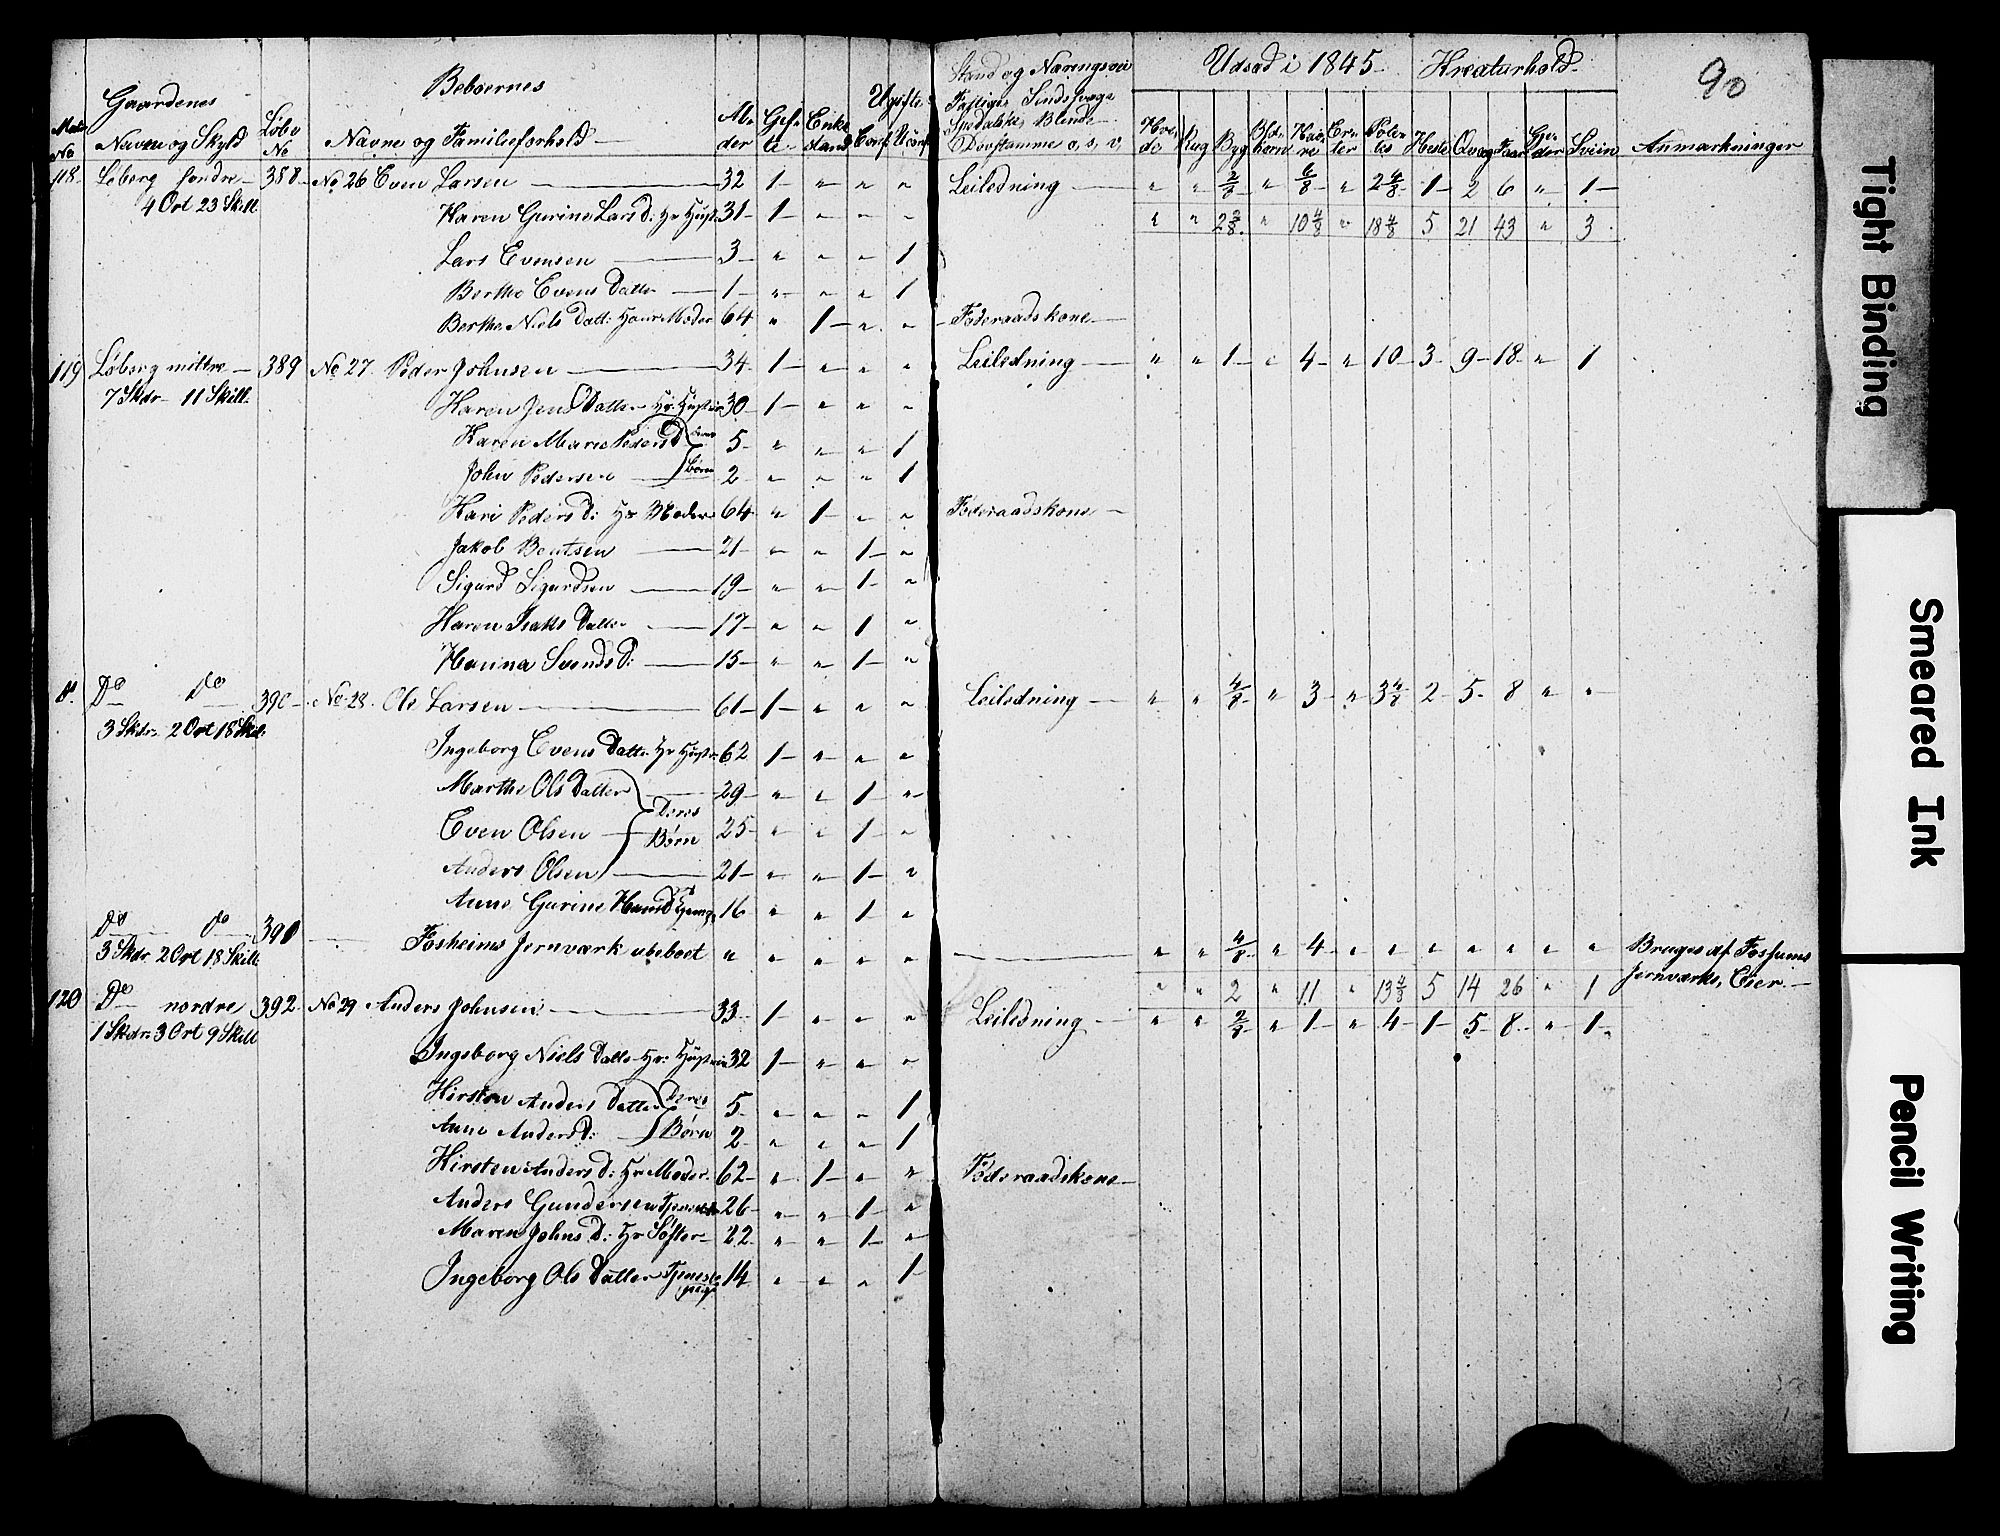 Gaardenes Beboernes Ugifte Stand og Næringsvei Udsæd i 1845 Kreaturhold 90
Matr No Navn og Skyld Løbe No Navne og Familieforhold Alder Gifte Enkestand Conf. Uconf. Fattige Sindssvage Spedalske Blinde Døvstumme o, s, v, Hvede Rug Byg Havre Erter Potetes Heste Qvæg Faar Gjeder Sviin Anmærkninger
118. Løberg søndre 388 No 26 Even Larsen 32 1 " " " Leilending " " 2/8 " 6/8 " 2 4/8 1 2 6 " 1
4 Ort 23 Skill Karen Gurine Lars d: Hs Hustr 31 1 " " " " " 2 2/8 " 10 4/8 " 18 4/8 5 21 43 " 3
Lars Evensen 3 " " " 1
Berthe Evens Datter 1 " " " 1
Berthe Niels Datt: Moder 64 " 1 " " Føderaadskone
119 Løberg mittre 389 No 27. Peder Johnsen 34 1 " " " Leilending " " 1 " 4 " 10 3 9 18 " 1
7 Skdr 11 Skill Karen Jens Datter Hs: Hustru 30 1 " " "
Karen Marie Peders D deres 5 " " " 1
John Pedersen børn 2 " " " 1
Kari Peders d: Hs Moder 64 " 1 " " Føderaadskone
Jakob Bentsen 21 " " 1 "
Sigurd Sigurdsen 19 " " 1 "
Karen Isaks Datter 17 " " 1 "
Hanna Svends d: 15 " " 1 "
Do Do Do 390 No 28. Ole Larsen 61 1 " " " Leilending " " 4/8 " 3 " 3 4/8 2 5 8 " "
3 Skdr 2 Ort 18 Skill Ingeborg Evens Datter Hs Hustr 62 1 " " "
Marthe Ols Datter 29 " " 1 "
Even Olsen Deres Børn 25 " " 1 "
Anders Olsen 21 " " 1 "
Anne Gurine Hansd 16 " " 1 "
Do Do 391 Fosheims Jernværk ubeboet " " " " " " " 4/8 " 4 " " " " " " " Bruges af Fossums
3 Skdr 2 Ort 18 Skill " " 2 " 11 " 13 4/8 5 14 26 " 1 Jernværks, Eier.
120 Do nordre 392 No 29 Anders Johnsen 33 1 " " " Leilending " " 2/8 " 1 " 4 1 5 8 " 1
1 Skdr 3 Ort 9 Skill
Ingeborg Niels Datter Hs: Hustru 32 1 " " "
Kirsten Anders Datter Deres 5 " " " 1
Anne Anders d: Børn 2 " " " 1
Kirsten Anders d: Hs Moder 62 " 1 " " Føderaadskone
Anders Gundersen 26 " " 1 "
Maren Johns d: Hs Søster 22 " " 1 "
Ingeborg Ols Datter Tjenestepige 14 " " " 1
Tight Binding
Smeared Ink
Pencil Writing